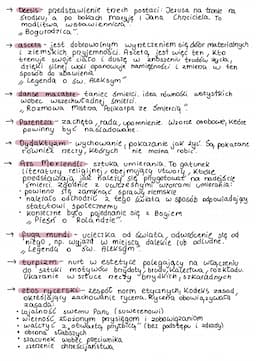 → Deesis - przedstawienie trzech postaci: Jezusa na tronie na
środku, a po bokach Maryję i Jana Chrzciciela. To
modlitwa wstawiennicza
„Bogurodzica”.
→ asceta - jest dobrowolnym wyrzeczeniem się dóbr materialnych
i ziemskich przyjemności. Asceta, jest więc ten, kto
trenuje swoje ciało i duszę w znoszeniu trudów życia,
dzięki silnej woli opanowuje namiętności i zmierza w ten
sposób do zbawienia
„Legenda o św. Aleksym”
→ danse macabre - taniec śmierci, idea równości wszystkich
wobec wszechwładnej śmierci.
„Rozmowa Mistrza Polikarpa ze Śmiercią”.
→ Parenteza - zachęta, rada, upomnienie. Wzorce osobowe, które
powinny być naśladowane.
→ Dydaktyzm - wychowanie, pokazanie jak żyć. Są pokazane
również rzeczy, których nie można robić.
→ Ars Moriendi - sztuka umierania. To gatunek
literatury religijnej, obejmujący utwory, które
przedstawiają jak należy się przygotować na nadejście
śmierci zgodnie z ówczesnymi wzorcami umierania:
• powinno się zamknąć sprawy ziemskie
• należało odchodzić z tego świata w sposób odpowiadający
statutowi społecznemu
• konieczne było pojednanie się z Bogiem
„Pieśń o Rolandzie”.
→ fuga mundi - ucieczka od świata, odwrócenie się od
niego, np. wyjazd w miejsca dalekie lub odludne.
„Legenda o św. Aleksym”
→ turpizm - nurt w estetyce polegający na włączeniu
do sztuki motywów brzydoty, brudu, kalectwa, rozkładu
Ukazanie w sztuce rzeczy brzydkich, szkaradnych
→ etos rycerski - zespół norm etycznych, kodeks zasad,
określający zachowanie rycerza. Rycerza obowiązywała
zasada:
• lojalność swemu Panu (suwerenowi)
• wierność złożonym przysięgom i zobowiązaniom
• walczyć z „otwartą przyłbicą” (bez podstępu i zdrady)
• obrona słabszych
• szacunek wobec przeciwnika
• szerzenie chrześcijaństwa.